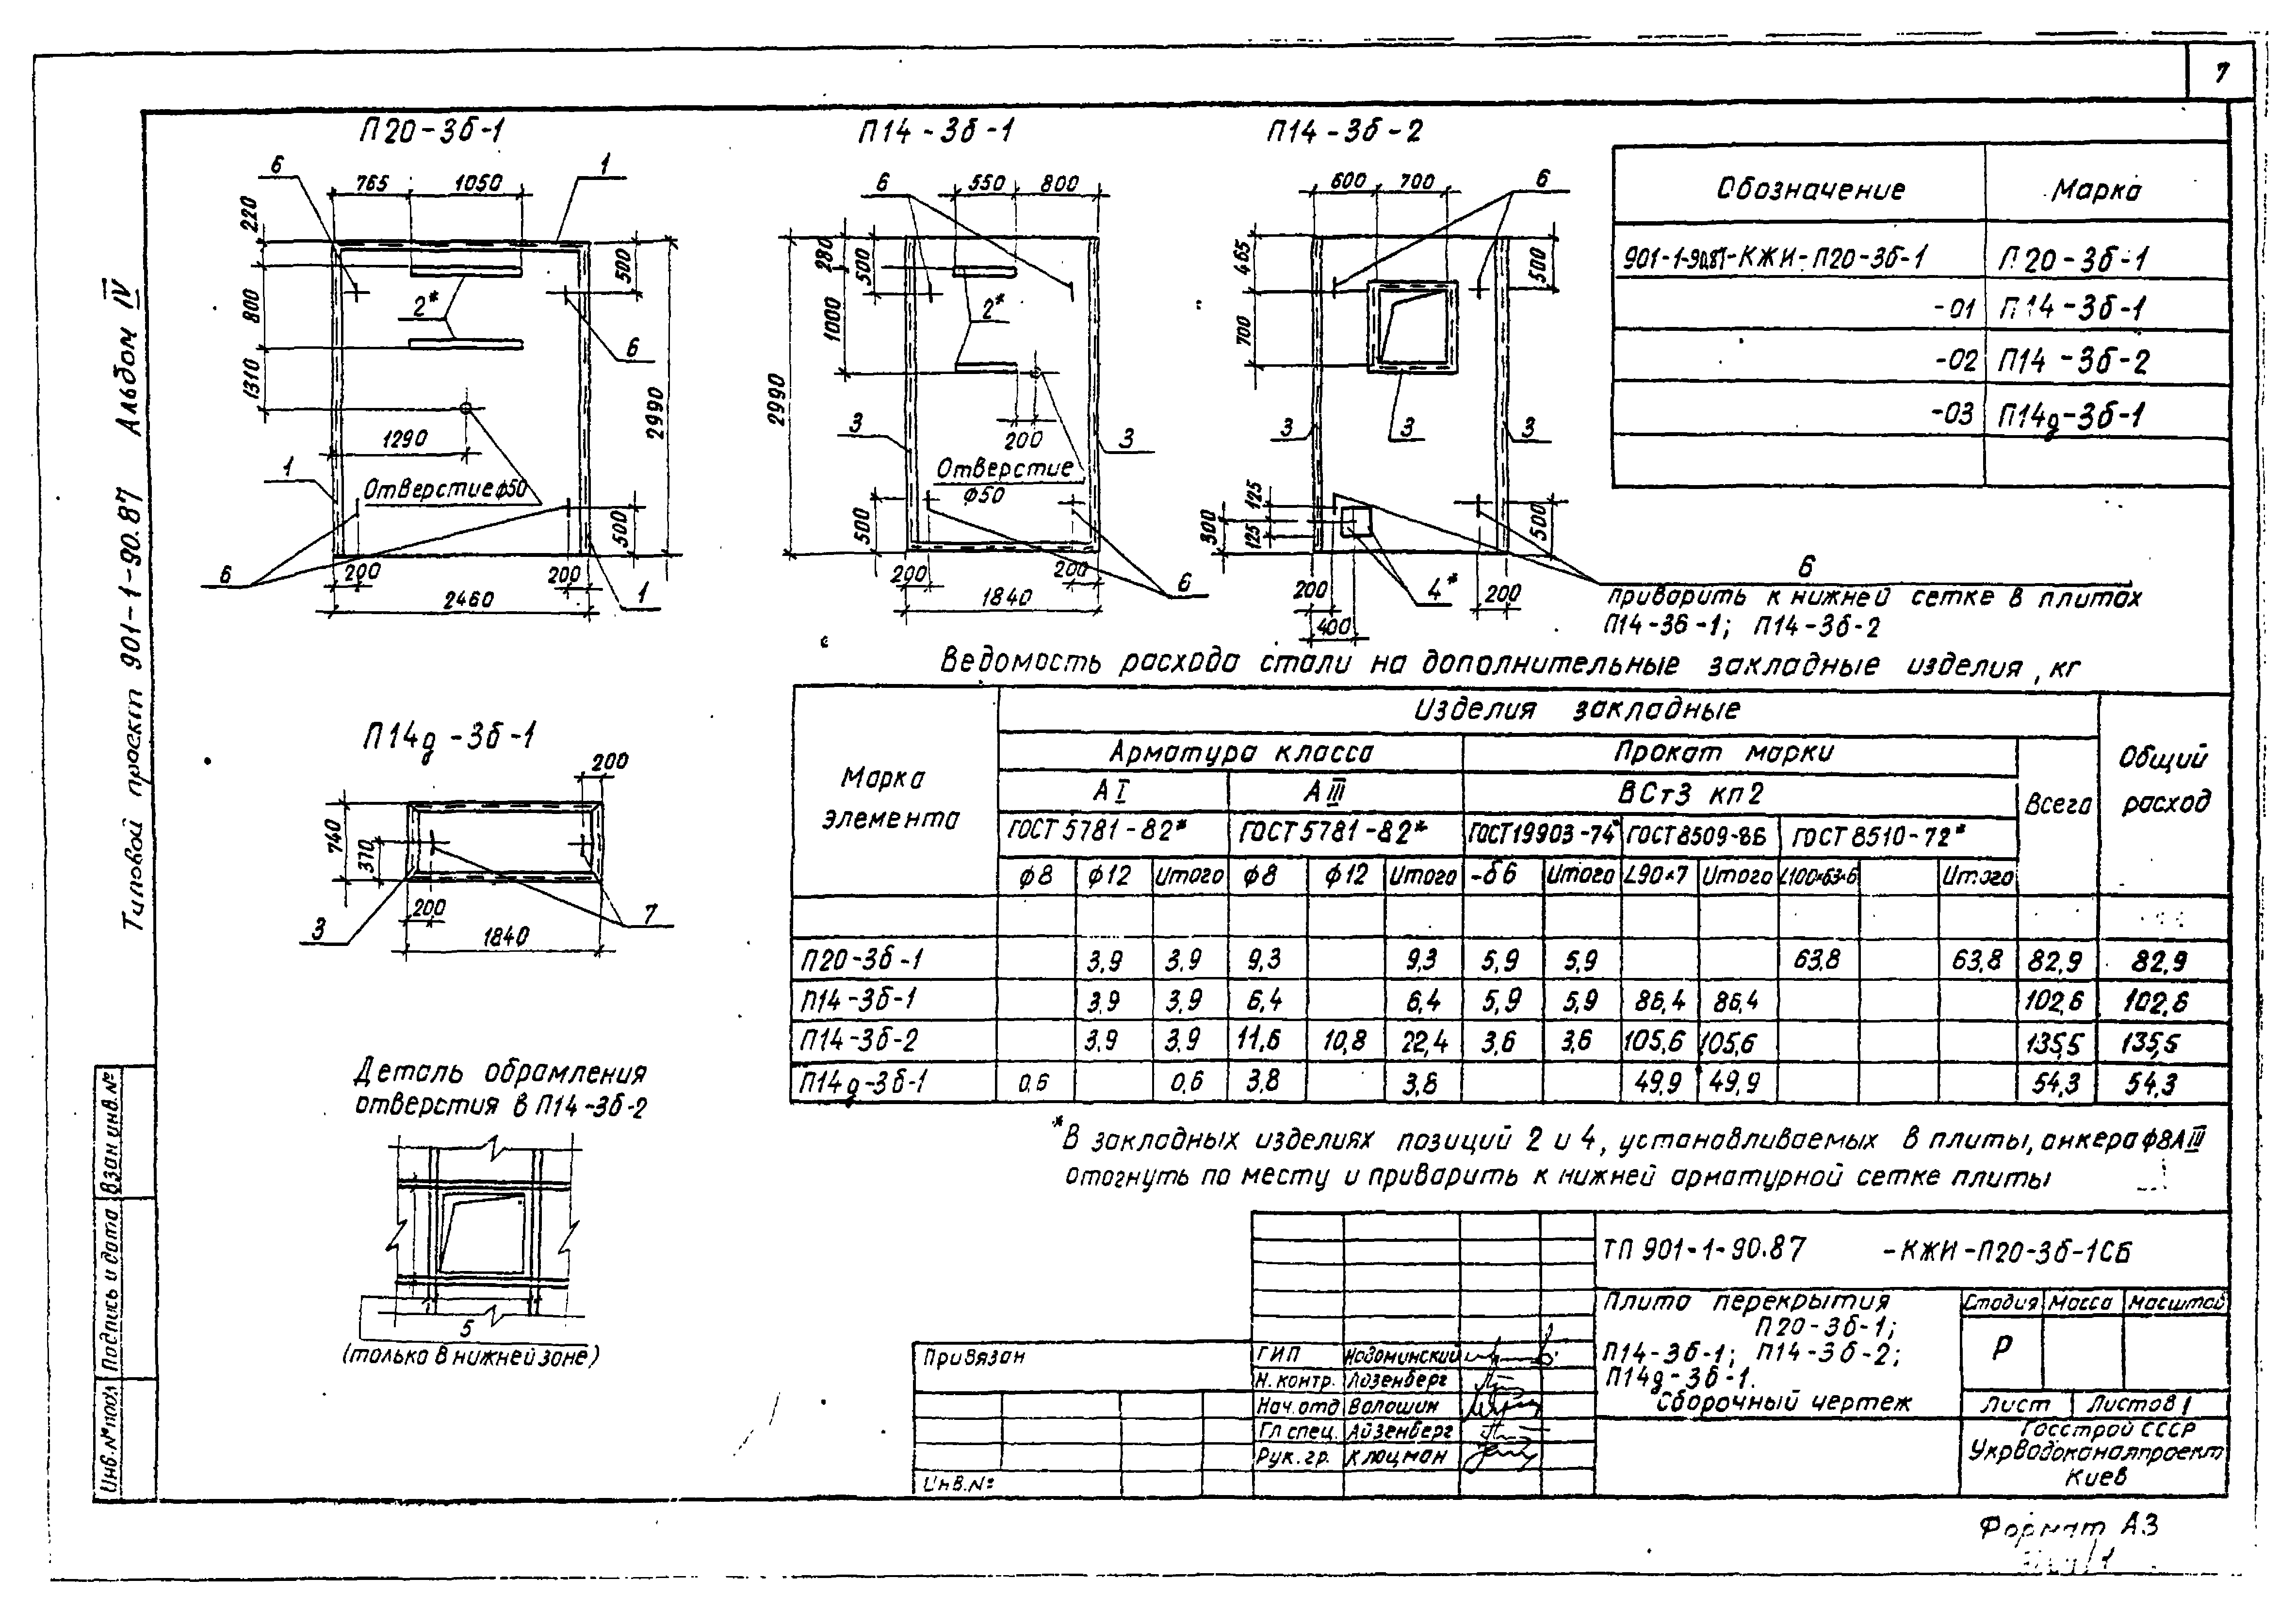 7
Типовой проект 901-1-90.87 Альбом IV
П20-3б-1
6
765
1050
1
220
800
1310
500
2990
2*
6
1290
Отверстие ϕ50
1
500
6
200
200
1
2460
П14-3б-1
6
550
800
280
500
1000
2990
2*
3
3
200
Отверстие
ϕ50
500
200
200
6
1840
П14-3б-2
600
700
6
465
500
700
3
3
3
125
300
125
500
200
4*
200
400
6
приварить к нижней сетке в плитах
П14-3б-1; П14-3б-2
Обозначение Марка
901-1-90.87-КЖИ-П20-3б-1 П20-3б-1
-01 П14-3б-1
-02 П14-3б-2
-03 П14д-3б-1
П14д-3б-1
200
740
370
200
3
7
1840
Ведомость расхода стали на дополнительные закладные изделия, кг
Марка элемента
Изделия закладные
Общий расход
Арматура класса Прокат марки Всего
АI АIII ВСт3 кп2
ГОСТ 5781-82* ГОСТ 5781-82* ГОСТ 19903-74* ГОСТ 8509-86 ГОСТ 8510-72*
ϕ8 ϕ12 Итого ϕ8 ϕ12 Итого -δ6 Итого L90×7 Итого L100×63×6 Итого
П20-3б-1 3,9 3,9 9,3 9,3 5,9 5,9 63,8 63,8 82,9 82,9
П14-3б-1 3,9 3,9 6,4 6,4 5,9 5,9 86,4 86,4 102,6 102,6
П14-3б-2 3,9 3,9 11,6 10,8 22,4 3,6 3,6 105,6 105,6 135,5 135,5
П14д-3б-1 0,6 0,6 3,8 3,8 49,9 49,9 54,3 54,3
*В закладных изделиях позиций 2 и 4, устанавливаемых в плиты, анкера ϕ8АIII
отогнуть по месту и приварить к нижней арматурной сетке плиты
Деталь обрамления
отверстия в П14-3б-2
5
(только в нижней зоне)
Взам инв.№
Подпись и дата
Инв.№ подл
Привязан
Инв.№
ГИП
Н. контр. Айзенберг
Нач. отд Волошин
Гл спец. Айзенберг
Рук. гр. Клоцман
ТП 901-1-90.87 -КЖИ-П20-3б-1СБ
Плита перекрытия
П20-3б-1;
П14-3б-1; П14-3б-2;
П14д-3б-1.
Сборочный чертеж
Стадия Масса Масштаб
Р
Лист Листов 1
Госстрой СССР
Укрводоканалпроект
Киев
Формат А3